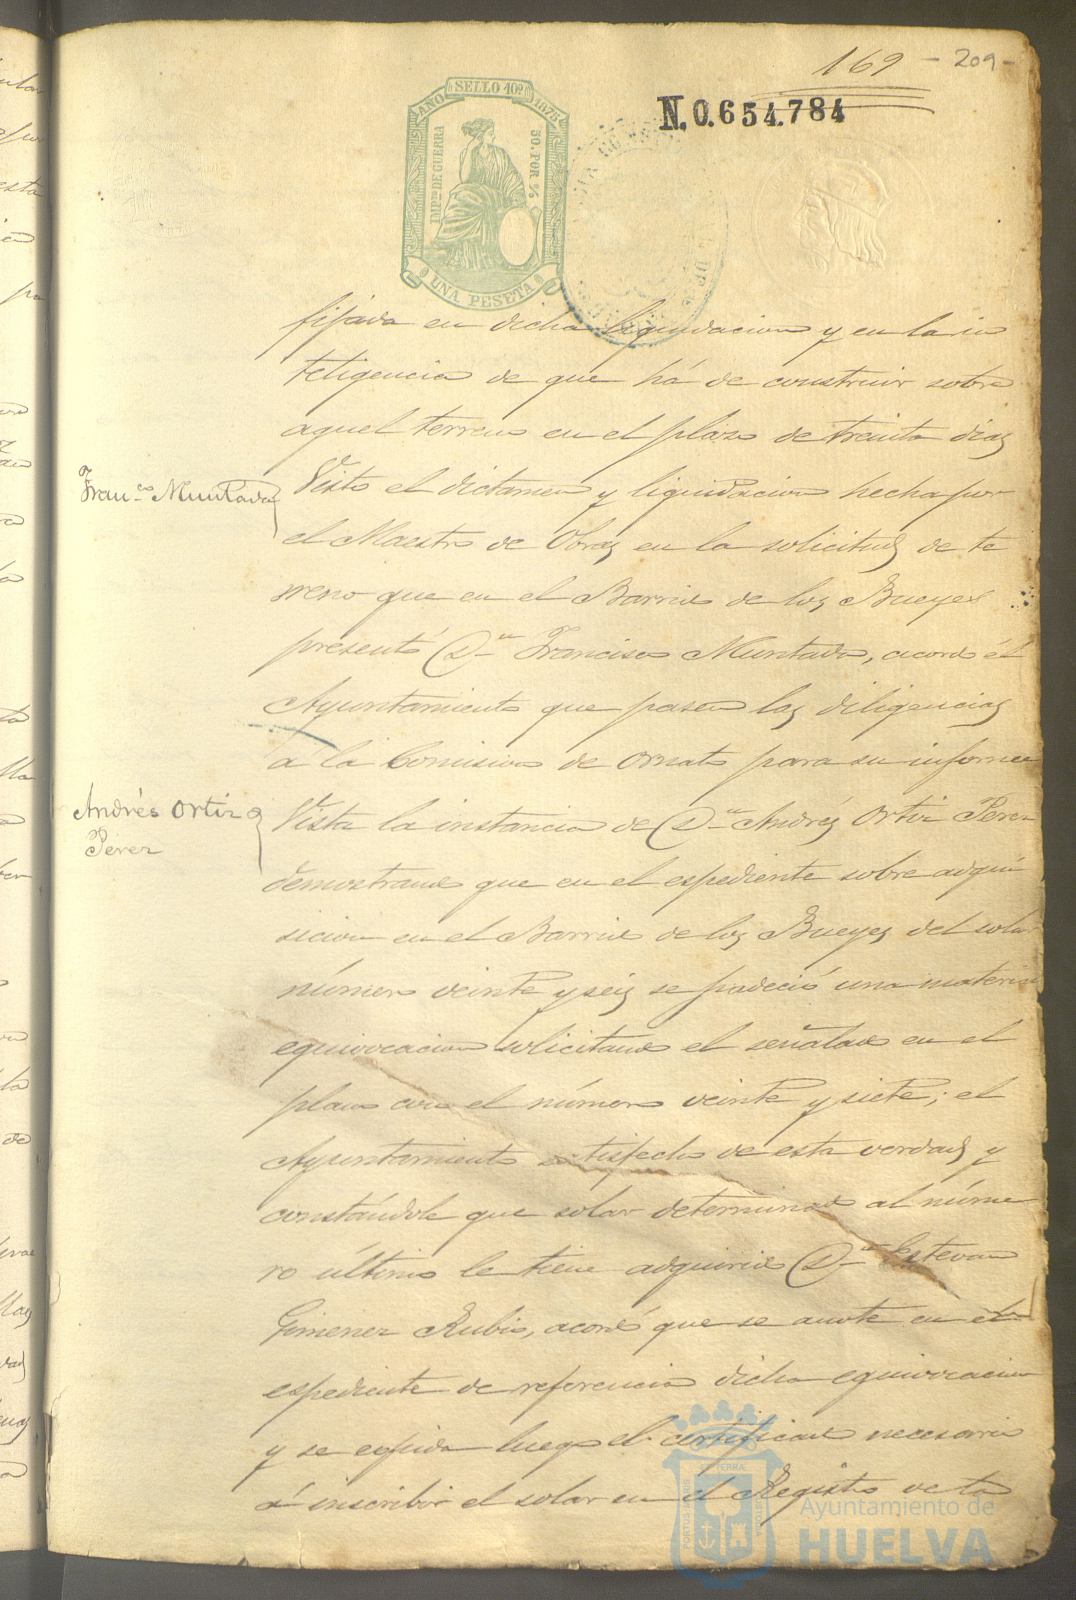 169 - 209 -
N. 0.654.784
AÑO SELLO 10º 1878
IMPTO DE GUERRA
50. POR %
UNA PESETA
fijada en dicha liquidacion y en la in
teligencia de que há de construir sobre
aquel terreno en el plazo de treinta dias
Fran.co Muntada
Visto el dictamen y liquidacion hecha por
el Maestro de Obras en la solicitud de te
rreno que en el Barrio de los Bueyes
presentó Dn Francisco Muntada, acordó él
Ayuntamiento que pasen las diligencias
á la Comision de ornato para su informe
Andrés Ortiz
Pérez
Vista la instancia de Dn Andrés Ortiz Pérez
demostrando que en el espediente sobre adqui
sicion en el Barrio de los Bueyes del solar
número veinte y seis se padeció una material
equivocacion solicitando el señalado en el
plano con el número veinte y siete; el
Ayuntamiento satisfecho de esta verdad y
constándole que solar determinado al núme
ro último le tiene adquirido Dn Estevan
Gimenez Rubio, acordó que se anote en el
espediente de referencia dicha equivocacion
y se espida luego el certificado necesario
á inscribir el solar en el Registro de la
Ayuntamiento de
HUELVA